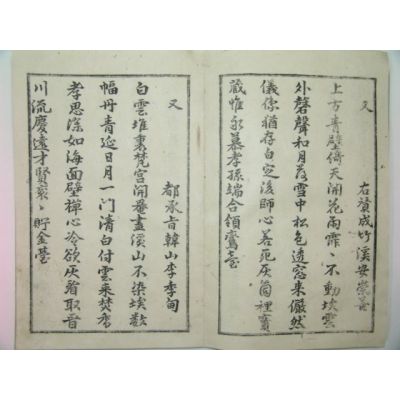 又
右贊成竹溪安崇善
上方青壁倚天開花雨霏〻不動埃雲
外磬聲和月落雪中松色透窓來儼然
儀像猶存日定後師心若死灰箇裡寶
藏惟永慕孝孫端合領鸞臺
又
都承旨韓山李季甸
白雲堆裏梵宮開菴畫溪山不染埃數
幅丹青近日月一門清白付雲來焚香
孝思深如海面壁禪心冷欲灰省取晉
川流慶遠才賢袞〻貯金臺